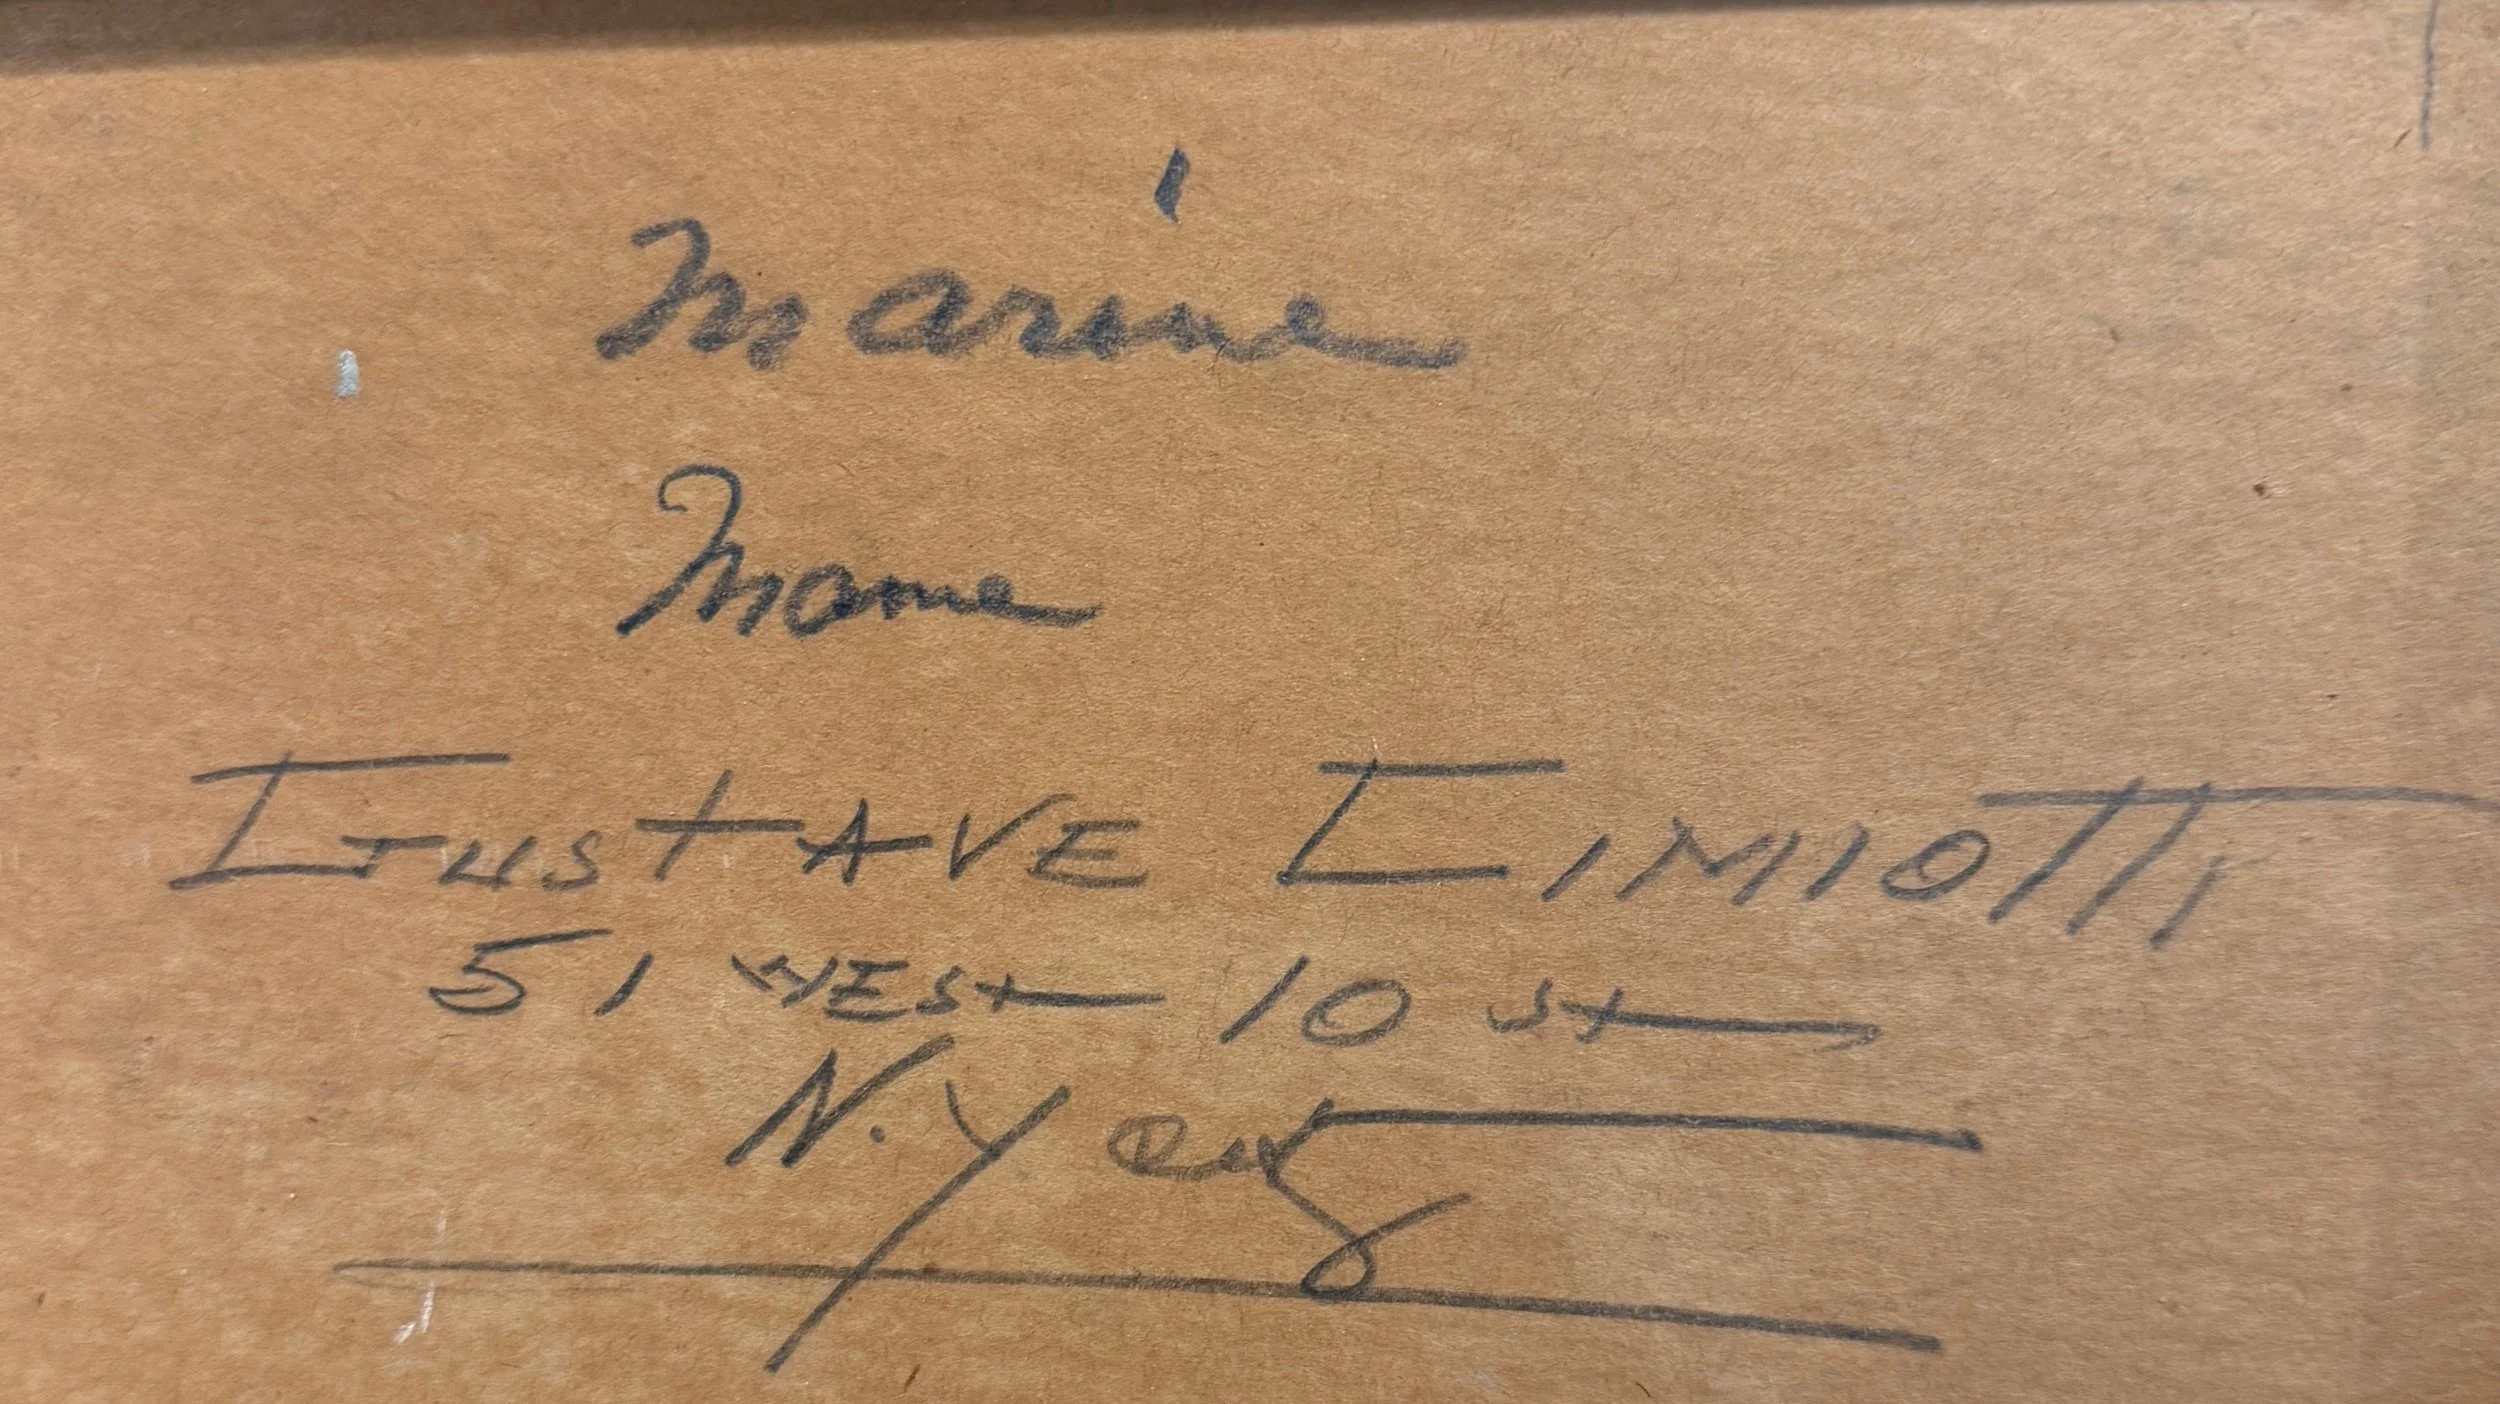 Marine
Marine
GUSTAVE CIMIOTTI
51 WEST 10 St
N.Y City